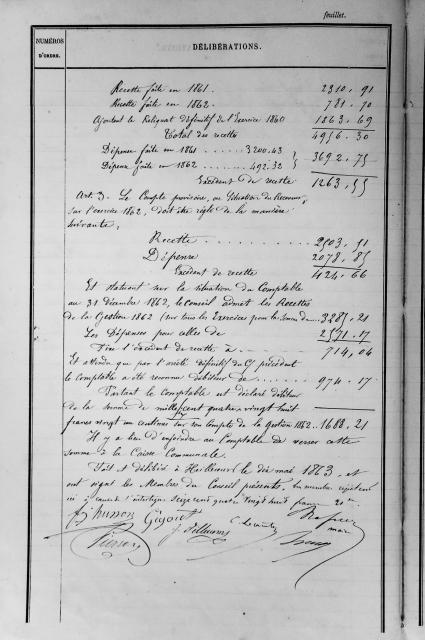 feuillet.
NUMÉROS D'ORDRE.
DÉLIBÉRATIONS.
Recette faite en 1861. 2310.91
Recette faite en 1862. 781.70
Ajoutant le Reliquat définitif de l'Exercice 1860 1863.69
Total des recettes 4956.30
Dépense faite en 1861 ....... 3200.43
Dépense faite en 1862 ....... 492.32 } 3692.75
Excédent de recette 1263.55
Art. 3. Le Compte provisoire, ou Situation du Receveur,
sur l'exercice 1862, doit être réglé de la manière
suivante;
Recette .......... 2503.51
Dépense 2078.85
Excédent de recette 424.66
Et statuant sur la situation du Comptable
au 31 décembre 1862, le Conseil admet les Recettes
de la Gestion 1862 (sur tous les Exercices pour la somme de ... 3285.21
Les Dépenses pour celles de 2571.17
Fixe l'excédent de recette à 714.04
Et attendu que par l'arrêté définitif du Cte précédent
le Comptable a été reconnu débiteur de ....... 974.17
Partant le Comptable est déclaré débiteur
de la somme de mille quatre vingt huit
francs vingt un centimes sur son Compte de la Gestion 1862 .. 1688.21
Il y a lieu d'enjoindre au Comptable de verser cette
somme à la Caisse Communale.
Fait et délibéré à le dix mai 1863, et
ont signé les Membres du Conseil présents,
à cause l'interligne Seize cent quatre vingt huit francs
Husson